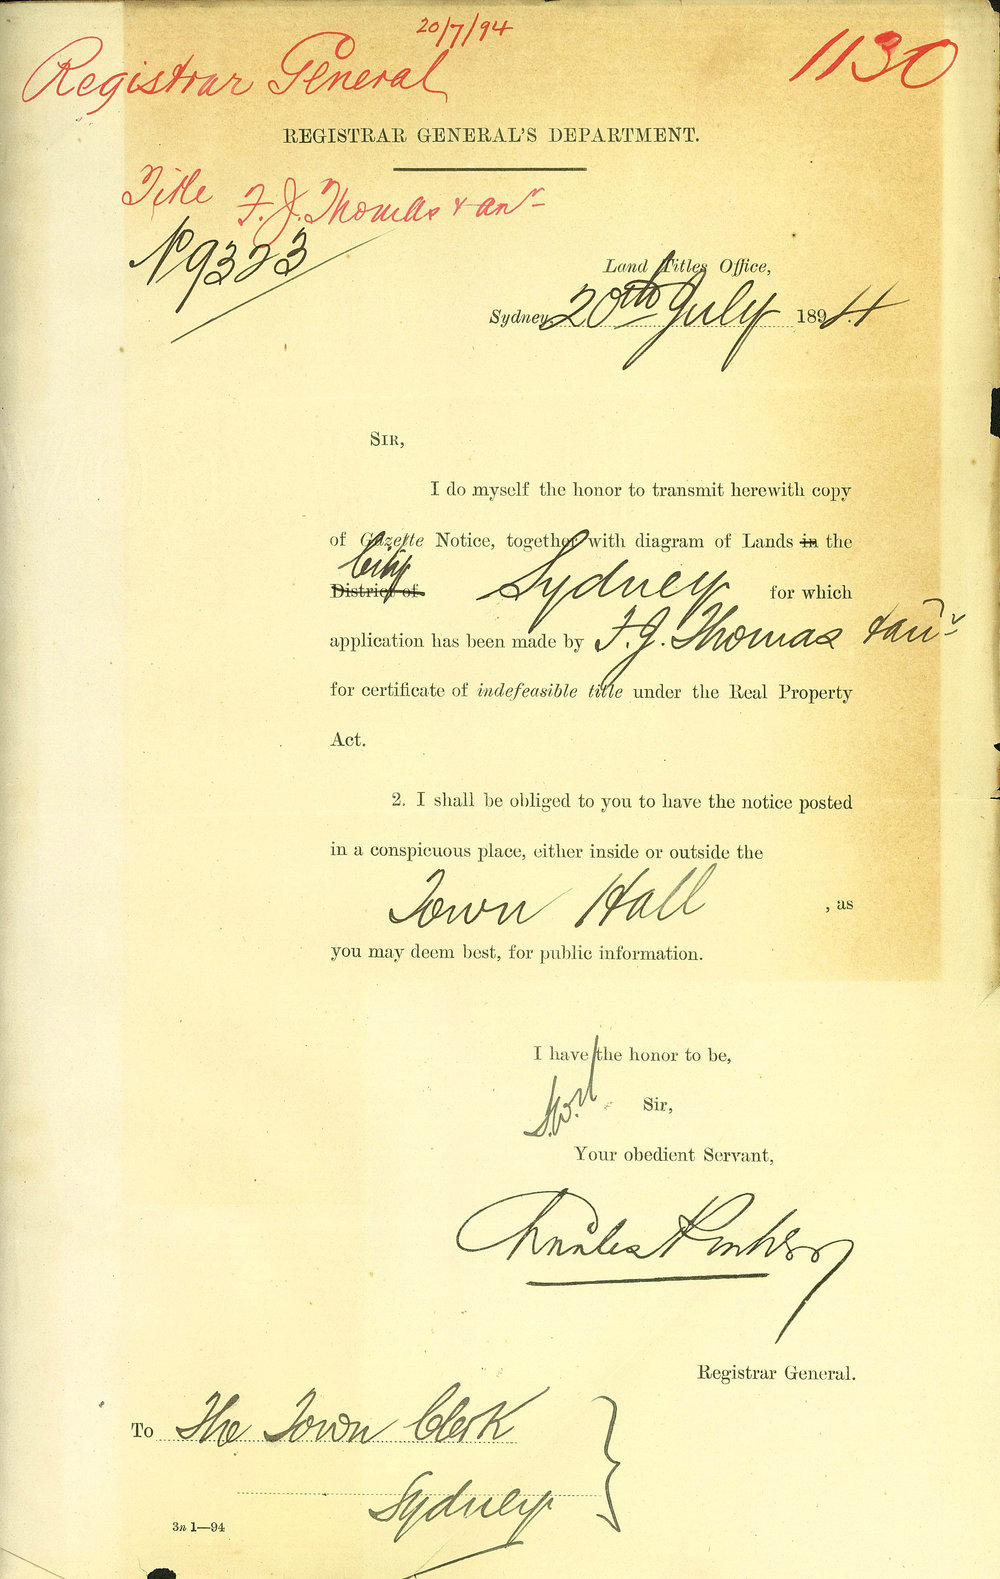 20/7/94
Registrar General
1130
REGISTRAR GENERAL'S DEPARTMENT.
Title F. J. Thomas & anr
No 9323
Land Titles Office,
Sydney, 20th July 1894
SIR,
I do myself the honor to transmit herewith copy
of Gazette Notice, together with diagram of Lands in the
City
District of Sydney for which
application has been made by F. J. Thomas & anr
for certificate of indefeasible title under the Real Property
Act.
2. I shall be obliged to you to have the notice posted
in a conspicuous place, either inside or outside the
Town Hall , as
you may deem best, for public information.
I have the honor to be,
Sir,
Your obedient Servant,
Charles
Registrar General.
To The Town Clerk
Sydney
3n 1—94